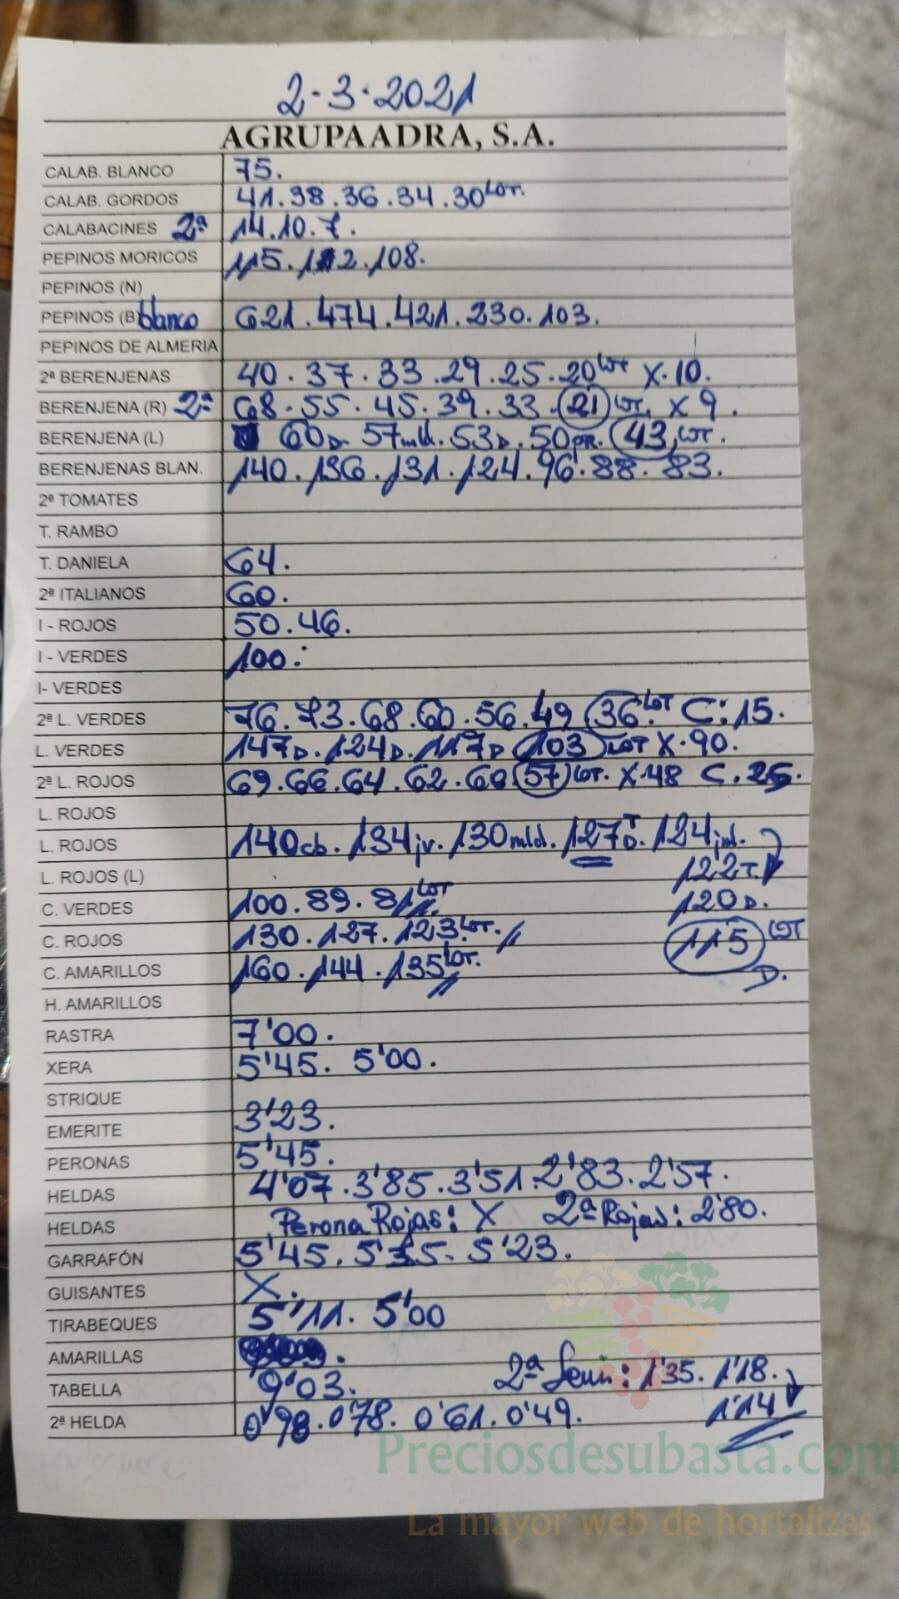 2-3-2021
AGRUPAADRA, S.A.
CALAB. BLANCO 75.
CALAB. GORDOS 41.38.36.34.30 LOT.
CALABACINES 2ª 14.10.7.
PEPINOS MORICOS 115.112.108.
PEPINOS (N)
PEPINOS (B) blanco 621.474.421.230.103.
PEPINOS DE ALMERIA
2ª BERENJENAS 40.37.33.29.25.20 LOT X.10.
BERENJENA (R) 2ª 68.55.45.39.33.21 LOT. X 9.
BERENJENA (L) 60D. 57mld. 53D. 50gr. 43 LOT.
BERENJENAS BLAN. 140.136.131.124.96.88.83.
2ª TOMATES
T. RAMBO
T. DANIELA 64.
2ª ITALIANOS 60.
I - ROJOS 50.46.
I - VERDES 100.
I- VERDES
2ª L. VERDES 76.73.68.60.56.49 36 LOT C:15.
L. VERDES 147D. 124D. 117D 103 LOT X.90.
2ª L. ROJOS 69.66.64.62.60.57 LOT. X.48 C.25.
L. ROJOS
L. ROJOS 140cb. 134jv. 130mld. 127D.T 124jml.
L. ROJOS (L) 122T.
C. VERDES 100.89.81 LOT 120D.
C. ROJOS 130.127.123 LOT. 115 LOT
C. AMARILLOS 160.144.135 LOT. D.
H. AMARILLOS
RASTRA 7'00.
XERA 5'45. 5'00.
STRIQUE
EMERITE 3'23.
PERONAS 5'45.
HELDAS 4'07.3'85.3'51.2'83.2'57.
HELDAS Perona Rojas: X 2ª Rojas: 2'80.
GARRAFÓN 5'45.5'35. 5'23.
GUISANTES X.
TIRABEQUES 5'11. 5'00
AMARILLAS
TABELLA 9'03. 2ª Semi: 1'35. 1'18.
2ª HELDA 0'98.0'78. 0'61.0'49. 1'14
Preciosdesubasta.com
La mayor web de hortalizas